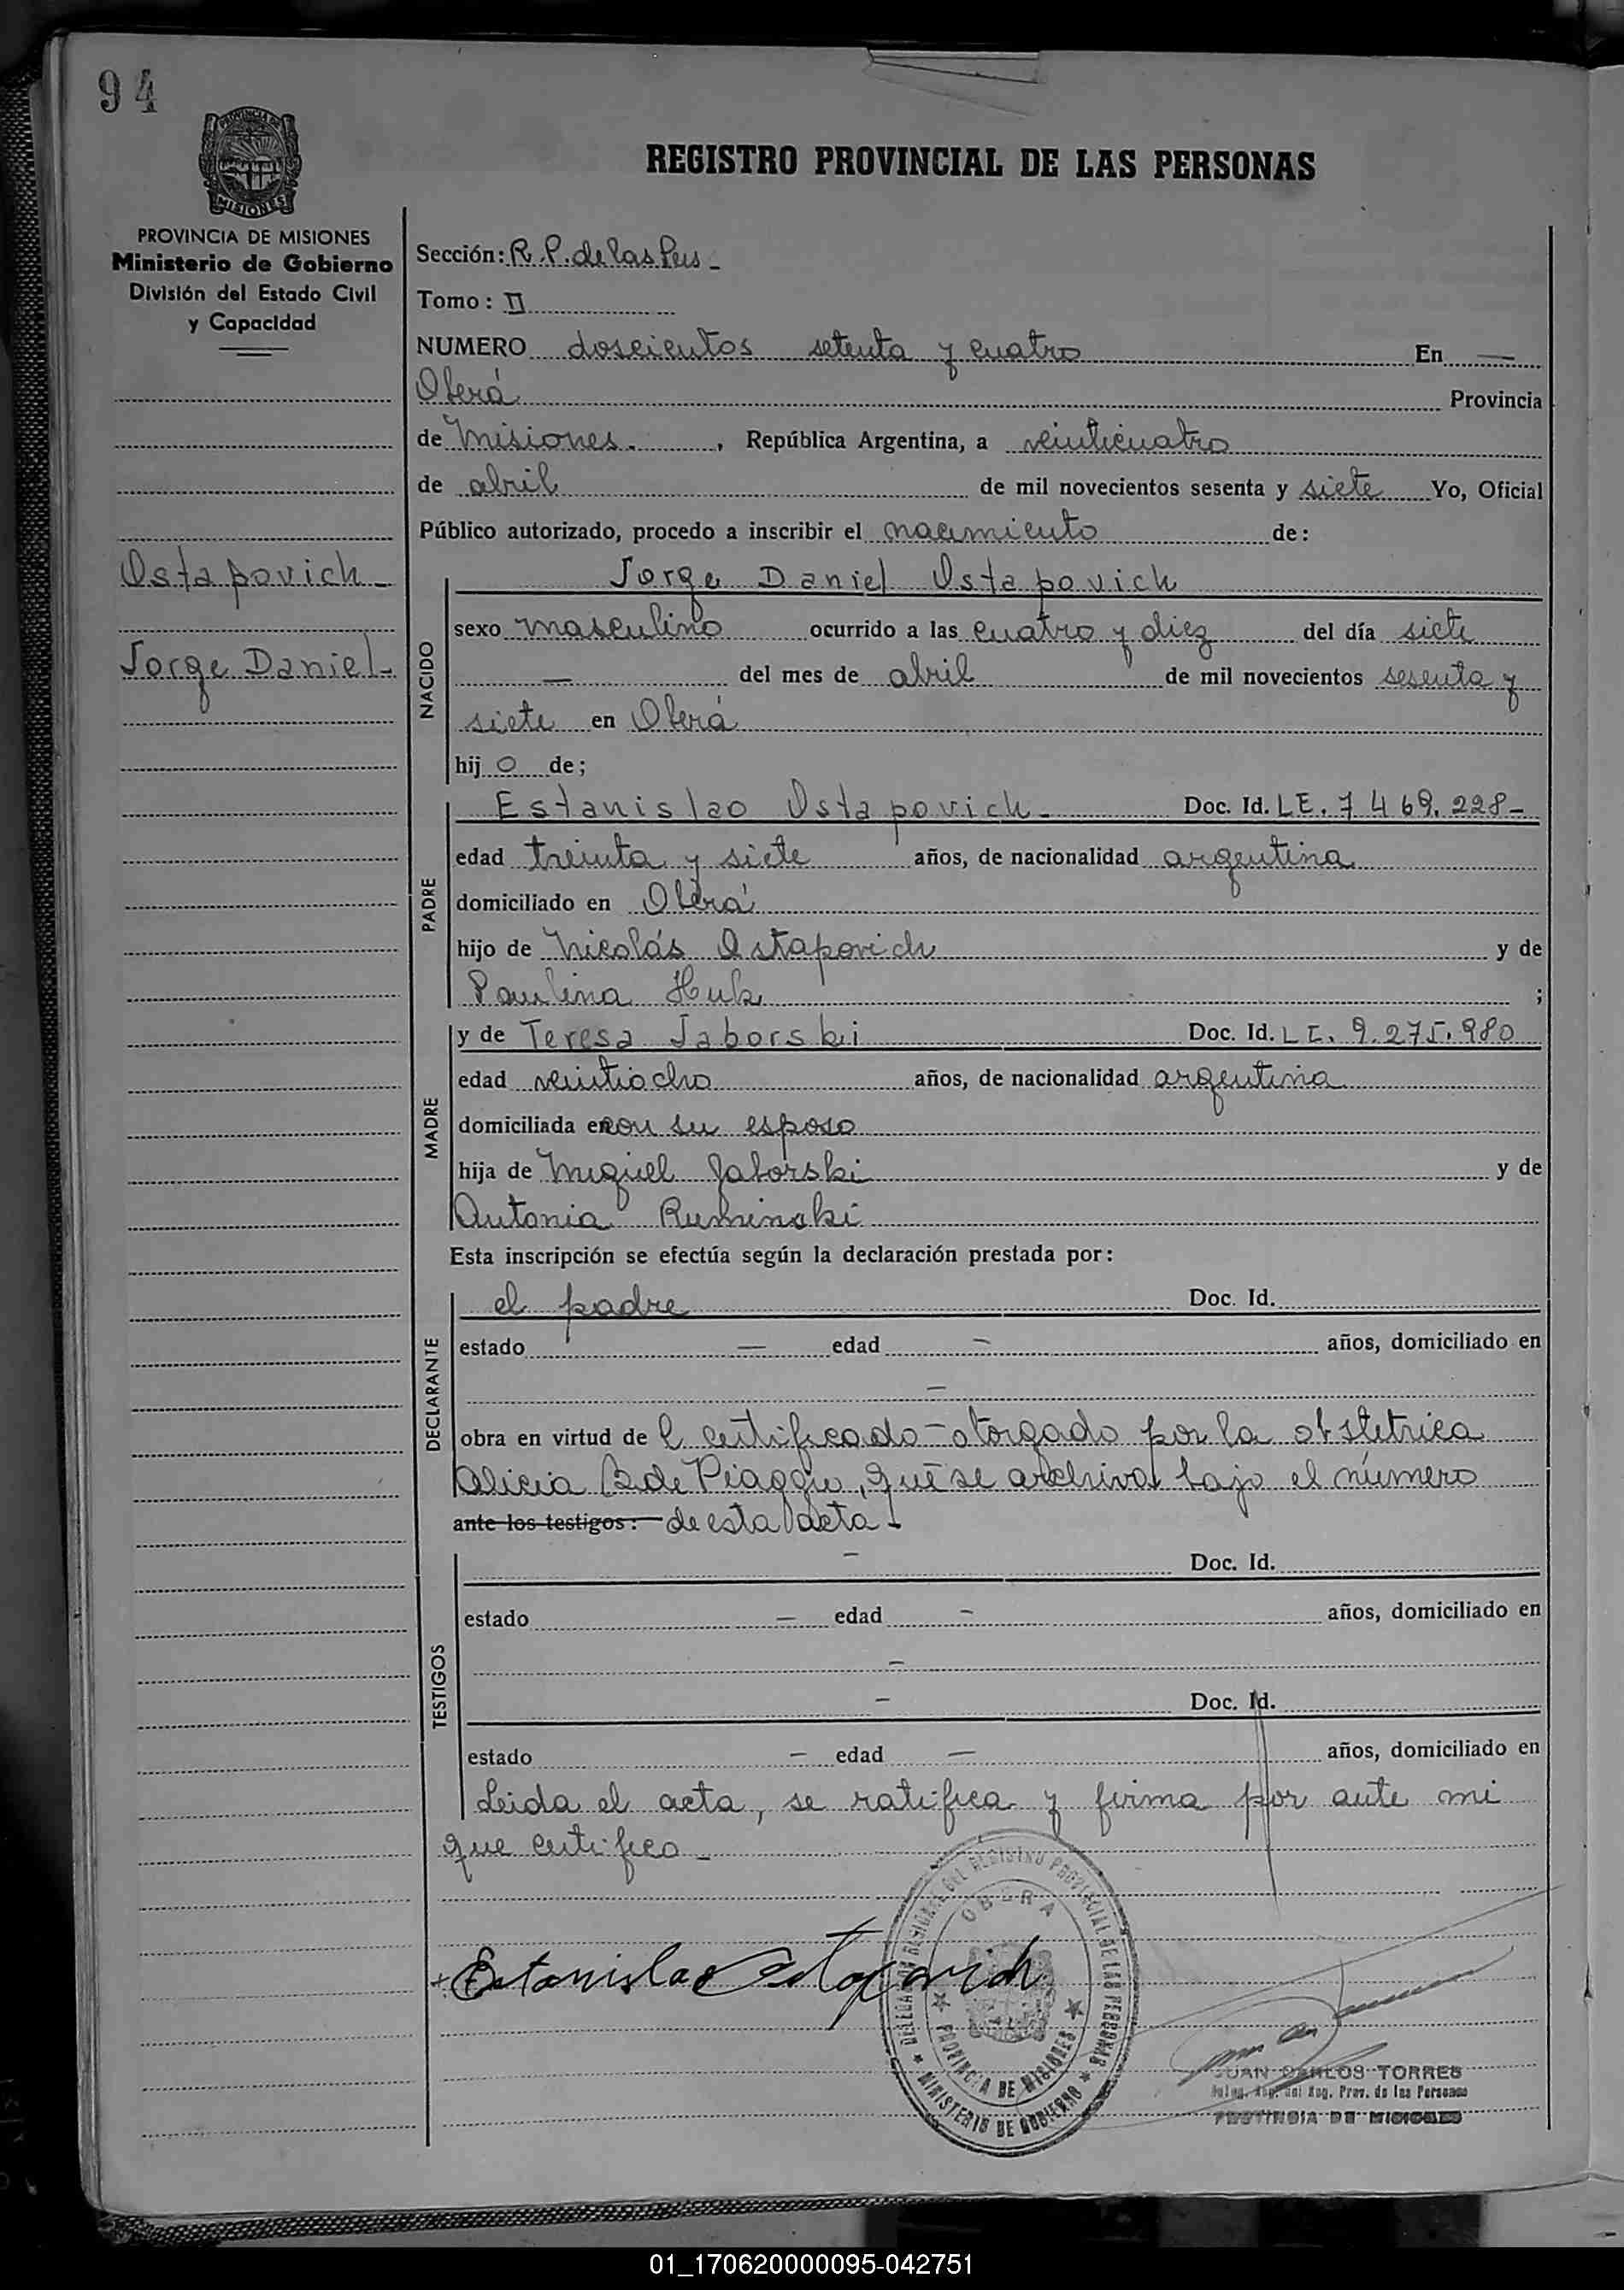 94
PROVINCIA DE
MISIONES
PROVINCIA DE MISIONES
Ministerio de Gobierno
División del Estado Civil
y Capacidad
Ostapovich -
Jorge Daniel -
REGISTRO PROVINCIAL DE LAS PERSONAS
Sección: R. P. de las Pers -
Tomo: II
NUMERO doscientos setenta y cuatro En —
Oberá Provincia
de Misiones. , República Argentina, a veinticuatro
de abril de mil novecientos sesenta y siete Yo, Oficial
Público autorizado, procedo a inscribir el nacimiento de:
Jorge Daniel Ostapovich
NACIDO
sexo masculino ocurrido a las cuatro y diez del día siete
— del mes de abril de mil novecientos sesenta y
siete en Oberá
hij o de;
PADRE
Estanislao Ostapovich - Doc. Id. LE. 7 469. 228 -
edad treinta y siete años, de nacionalidad argentina
domiciliado en Oberá
hijo de Nicolás Ostapovich y de
Paulina Huk ;
MADRE
y de Teresa Jaborski Doc. Id. L E. 9.275.980
edad veintiocho años, de nacionalidad argentina
domiciliada en con su esposo
hija de Miguel Jaborski y de
Antonia Ruminski
Esta inscripción se efectúa según la declaración prestada por:
DECLARANTE
el padre Doc. Id.
estado — edad — años, domiciliado en
—
obra en virtud de l certificado - otorgado por la obstetrica
Alicia B. de Piaggio, que se archiva bajo el número
ante los testigos: — de esta acta -
TESTIGOS
— Doc. Id.
estado — edad — años, domiciliado en
—
— Doc. Id.
estado — edad — años, domiciliado en
Leida el acta, se ratifica y firma por ante mi
que certifico -
Estanislao Ostapovich
DELEGACION REGIONAL DEL REGISTRO PROVINCIAL DE LAS PERSONAS
OBERA
PROVINCIA DE MISIONES
MINISTERIO DE GOBIERNO
JUAN CARLOS TORRES
Deleg. Reg. del Reg. Prov. de las Personas
PROVINCIA DE MISIONES
01_170620000095-042751